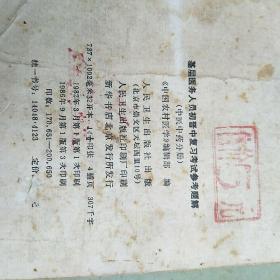 基层医务人员初晋中复习考试参考题解
(中医中药分册)
《中国农村医学》编辑部 编
人民卫生出版社出版
(北京市崇文区天坛西里10号)
人民卫生出版社印刷厂印刷
新华书店北京发行所发行
787×1092毫米32开本 印张 4插页 307千字
1983年3月第1版第1次印刷
1986年9月第1版第3次印刷
印数：170,651—200,650
统一书号：14048·4123 定价： 元